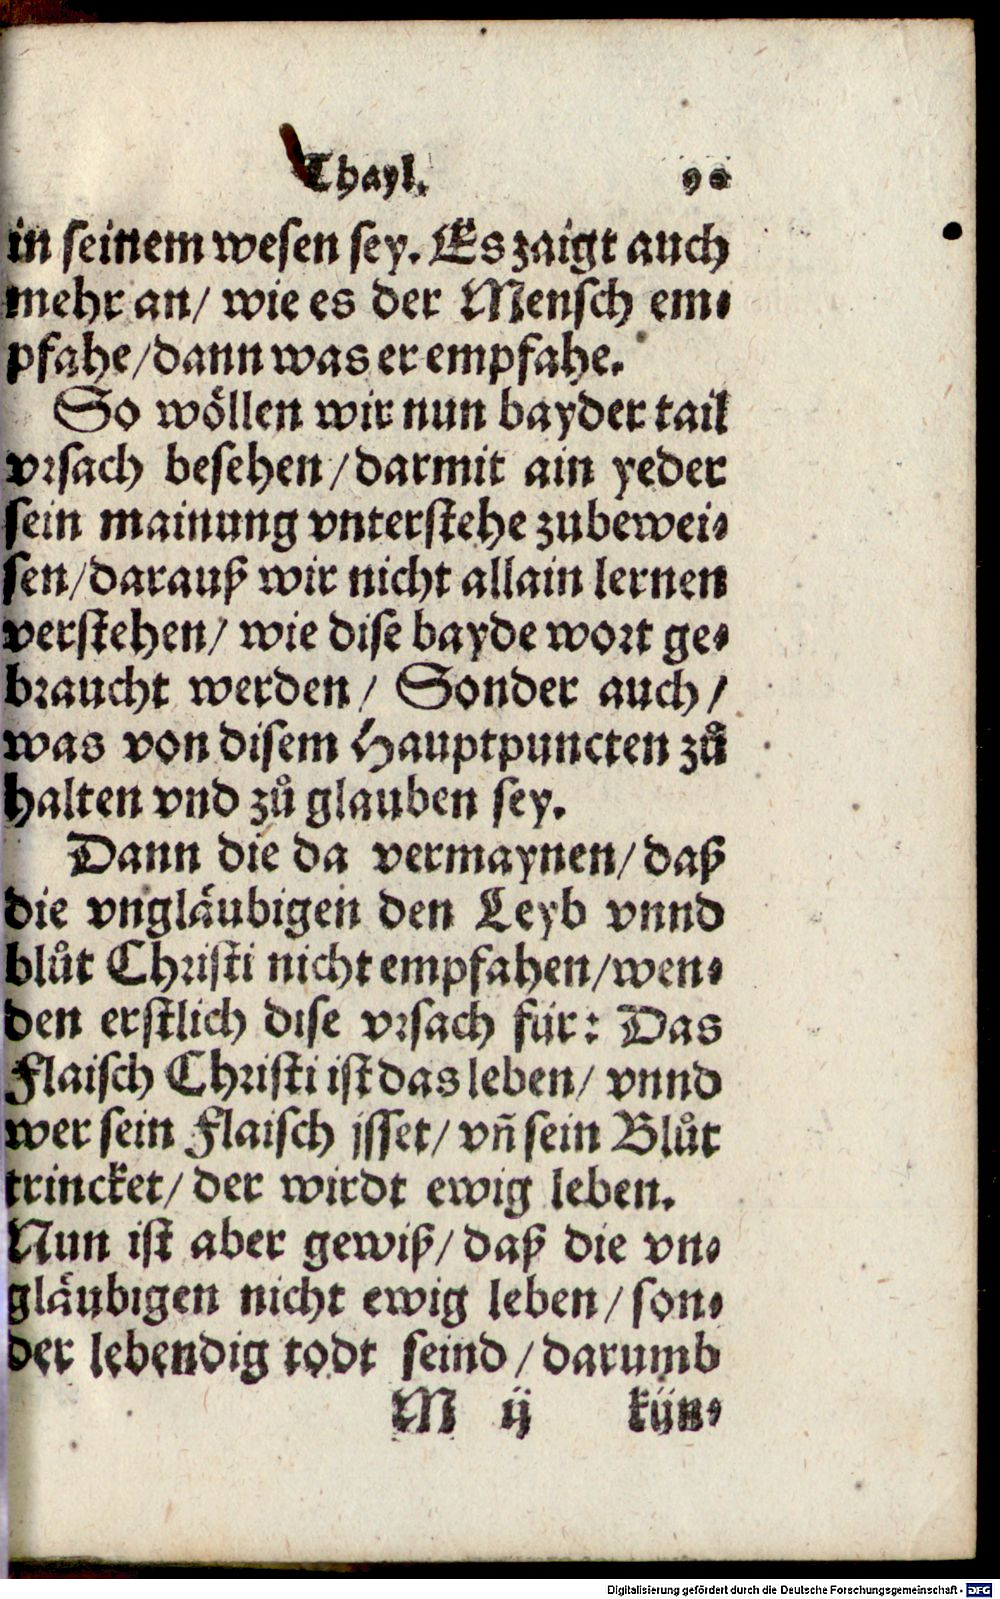 Thayl.
in seinem wesen sey. Es zaigt auch
mehr an/ wie es der Mensch em-
pfahe/dann was er empfahe.
So wöllen wir nun bayder tail
vrsach besehen/darmit ain yeder
sein mainung vnterstehe zubewei-
sen/darauß wir nicht allain lernen
verstehen/ wie dise bayde wort ge-
braucht werden/ Sonder auch/
was von disem Hauptpuncten zů
halten vnd zů glauben sey.
Dann die da vermaynen/daß
die vngläubigen den Leyb vnnd
blůt Christi nicht empfahen/wen-
den erstlich dise vrsach für: Das
Flaisch Christi ist das leben/ vnnd
wer sein Flaisch jsset/ vñ sein Blůt
trincket/ der wirdt ewig leben.
Nun ist aber gewiß/daß die vn-
gläubigen nicht ewig leben/son-
der lebendig todt seind/darumb
M ij kün-
Digitalisierung gefördert durch die Deutsche Forschungsgemeinschaft - DFG